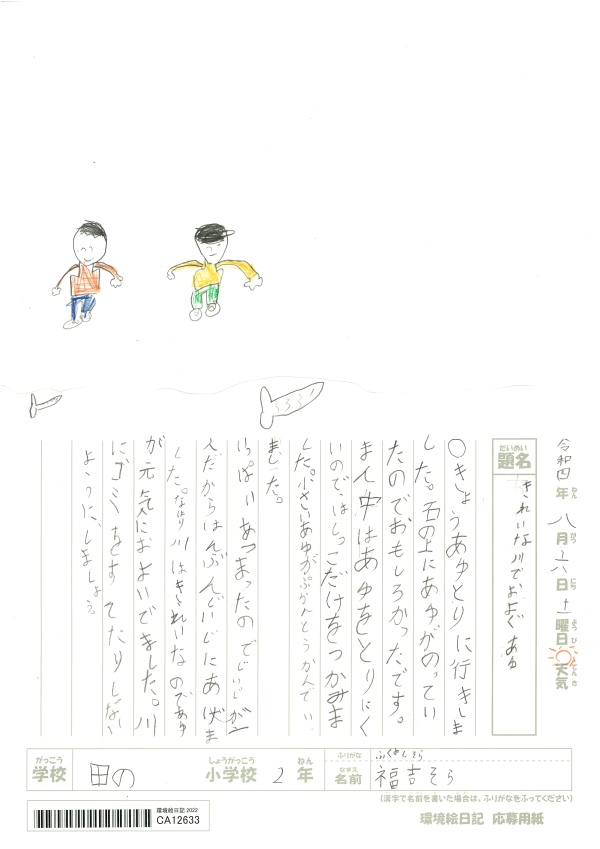 令和四年八月六日土曜日天気
だいめい
題名
きれいな川でおよぐあゆ
〇きょうあゆとりに行きしま
した。石の上にあゆがのってい
たのでおもしろかったです。
まん中はあゆをとりにく
いのではしっこだけをつかみま
した。小さいあゆがぷかんとうかんでい
ました。
いっぱいあつまったのでじいじが
んだからはんぶんどいじにあげま
した。なはり川はきれいなのであゆ
が元気におよいでました。川
にゴミをすてたりしない
ように、しましょう。
がっこう
学校
田の
しょうがっこう
小学校
2
ねん
年
ふりがな
ふくよしそら
なまえ
名前
福吉そら
(漢字で名前を書いた場合は、ふりがなをふってください)
環境絵日記2022
CA12633
環境絵日記 応募用紙